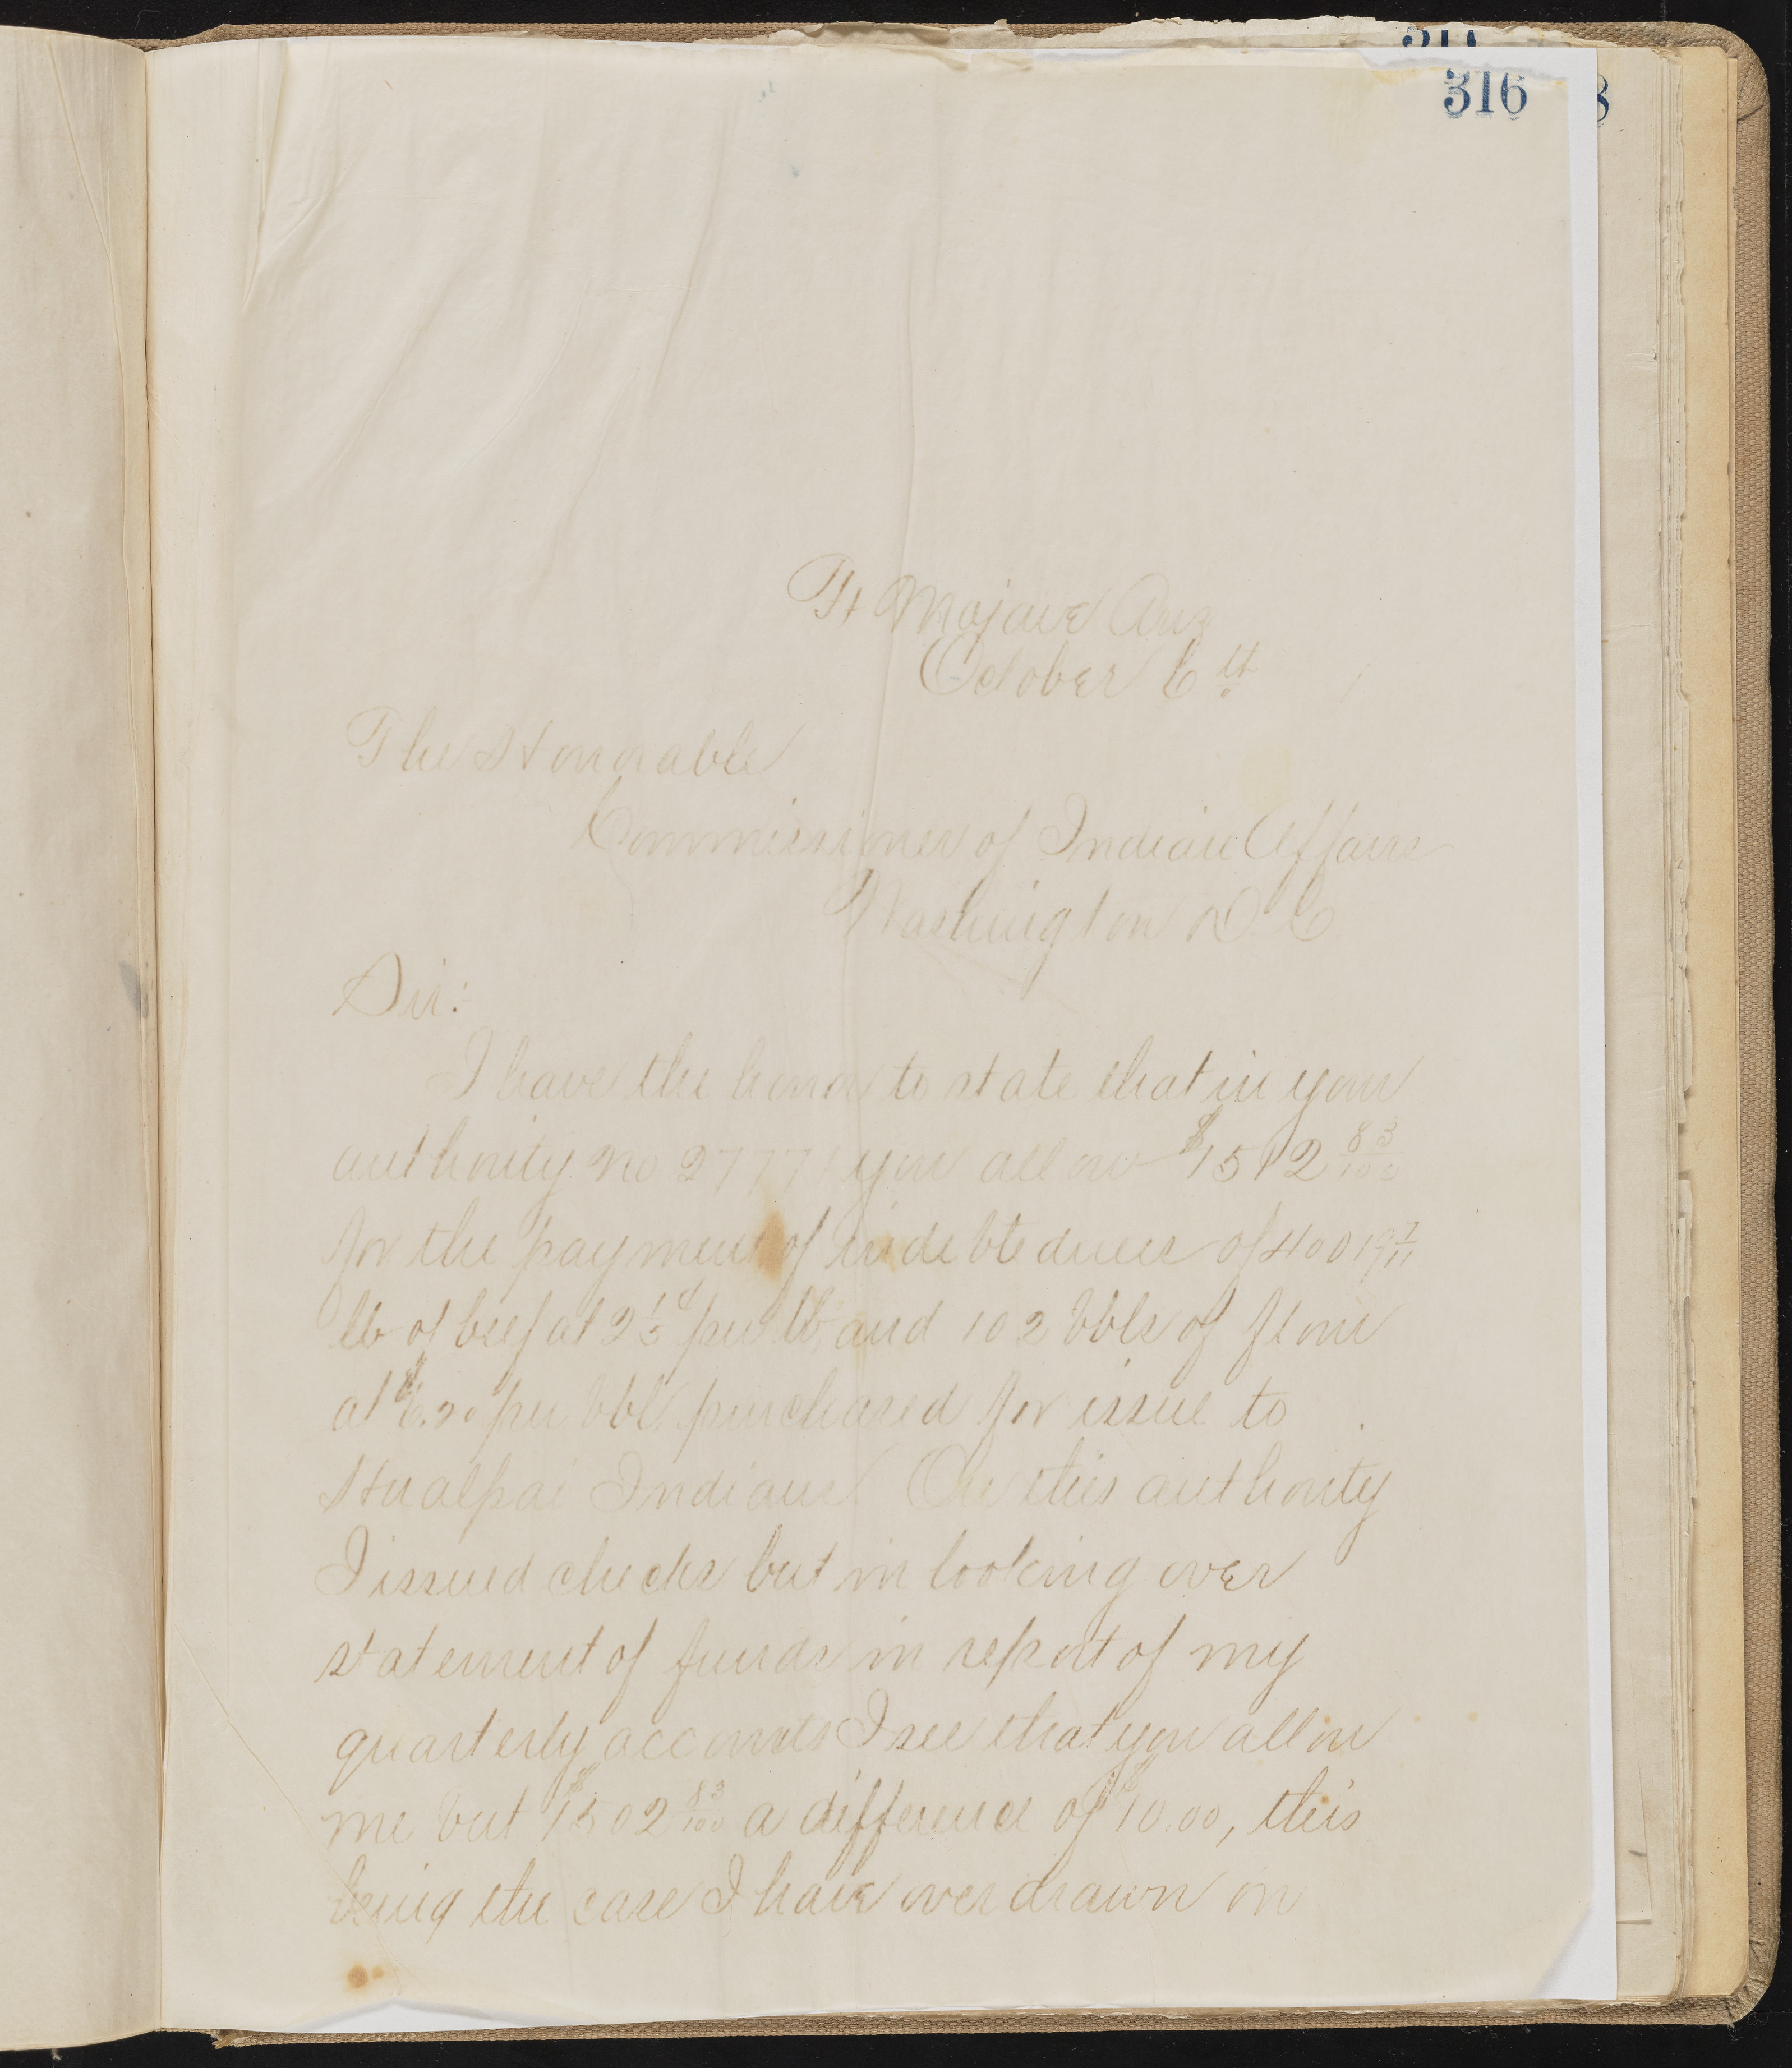 316
Ft Mojave Ariz
October 6th
The Honorable
Commissioner of Indian Affairs
Washington D.C.
Sir:
I have the honor to state that in your
authority no 27771 you allow $1512 83/100
for the payment of indebtedness of 40019 7/11
lb of beef at 2 1/5 ¢ per lb and 102 bbls of flour
at $6.20 per bbl purchased for issue to
Hualpai Indians. On this authority
I issued checks but in looking over
statement of funds in report of my
quarterly accounts I see that you allow
me but $1502 83/100 a difference of $10.00, this
being the case I have overdrawn on